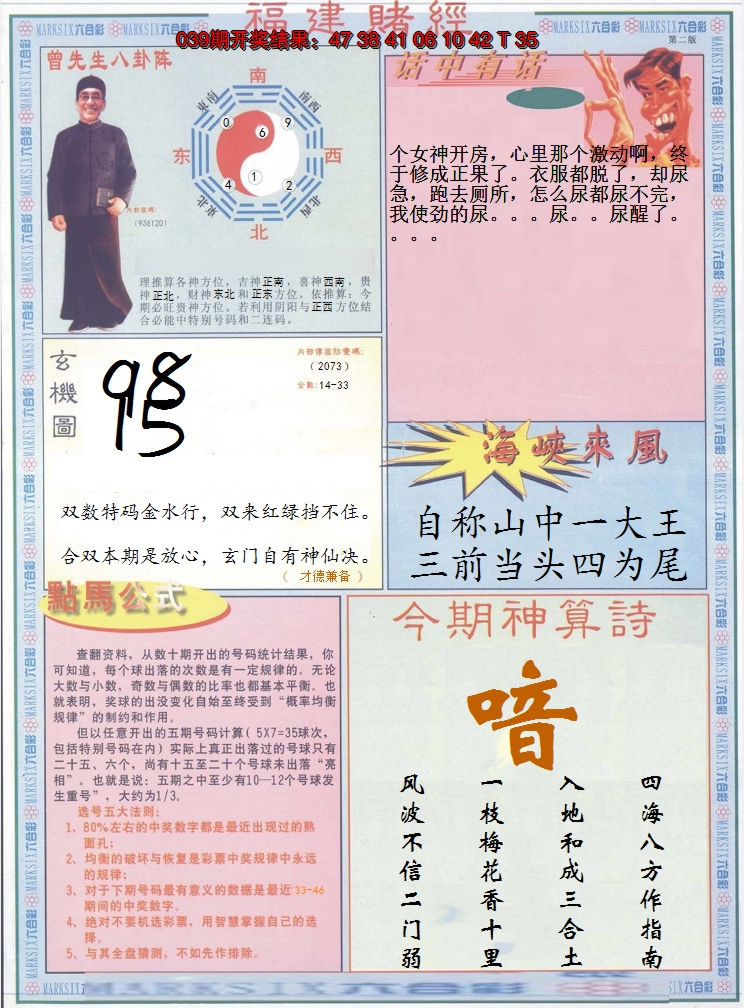 福建賭經
MARKSIX六合彩 MARKSIX六合彩 MARKSIX六合彩 MARKSIX六合彩
039期开奖结果：47 38 41 06 10 42 T 35
第二版
曾先生八卦阵
南
东南 西南
0 9
6
东 西
1
4 2
東北 西北
北
内部密碼:
(936120)
理推算各神方位，吉神正南，喜神西南，贵
神正北，财神东北和正东方位。依推算：今
期必旺贵神方位。若利用阴阳与正西方位结
合必能中特别号码和二连码。
话中有话
个女神开房，心里那个激动啊，终
于修成正果了。衣服都脱了，却尿
急，跑去厕所，怎么尿都尿不完，
我使劲的尿。。。尿。。尿醒了。
。。。
玄機圖
98
15
(2073)
合数:14-33
双数特码金水行，双来红绿挡不住。
合双本期是放心，玄门自有神仙决。
（ 才德兼备 ）
海峽來風
自称山中一大王
三前当头四为尾
點馬公式
查翻资料，从数十期开出的号码统计结果，你
可知道，每个球出落的次数是有一定规律的。无论
大数与小数，奇数与偶数的比率也都基本平衡。也
就表明，奖球的出没变化自始至终受到“概率均衡
规律”的制约和作用。
但以任意开出的五期号码计算( 5X7=35球次，
包括特别号码在内) 实际上真正出落过的号球只有
二十五、六个，尚有十五至二十个号球未出落“亮
相”。也就是说：五期之中至少有10—12个号球发
生重号”，大约为1/3。
选号五大法则:
1、80%左右的中奖数字都是最近出现过的熟
面孔;
2、均衡的破坏与恢复是彩票中奖规律中永远
的规律;
3、对于下期号码最有意义的数据是最近33-46
期间的中奖数字。
4、绝对不要机选彩票，用智慧掌握自己的选
择。
5、与其全盘猜测，不如先作排除。
今期神算詩
喑
四海八方作指南
入地和成三合土
一枝梅花香十里
风波不信二门弱